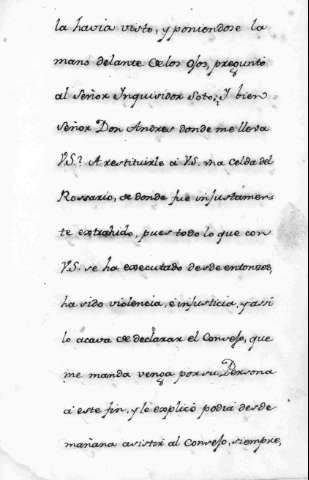 la havia visto, y poniendose la
mano delante de los ojos, pregunto
al Señor Inquisidor Soto; Y bien
Señor Don Andres donde me lleva
V.S.? A restituirle à V.S. una Celda del
Rossario, de donde fue injustamen
te extrahido, pues todo lo que con
V.S. se ha executado desde entonces,
ha sido violencia, è injusticia, y assi
lo acava de declarar el Consejo, que
me manda venga por su Persona
à este fin, y le explicò podia desde
mañana asistir al Consejo, siempre,